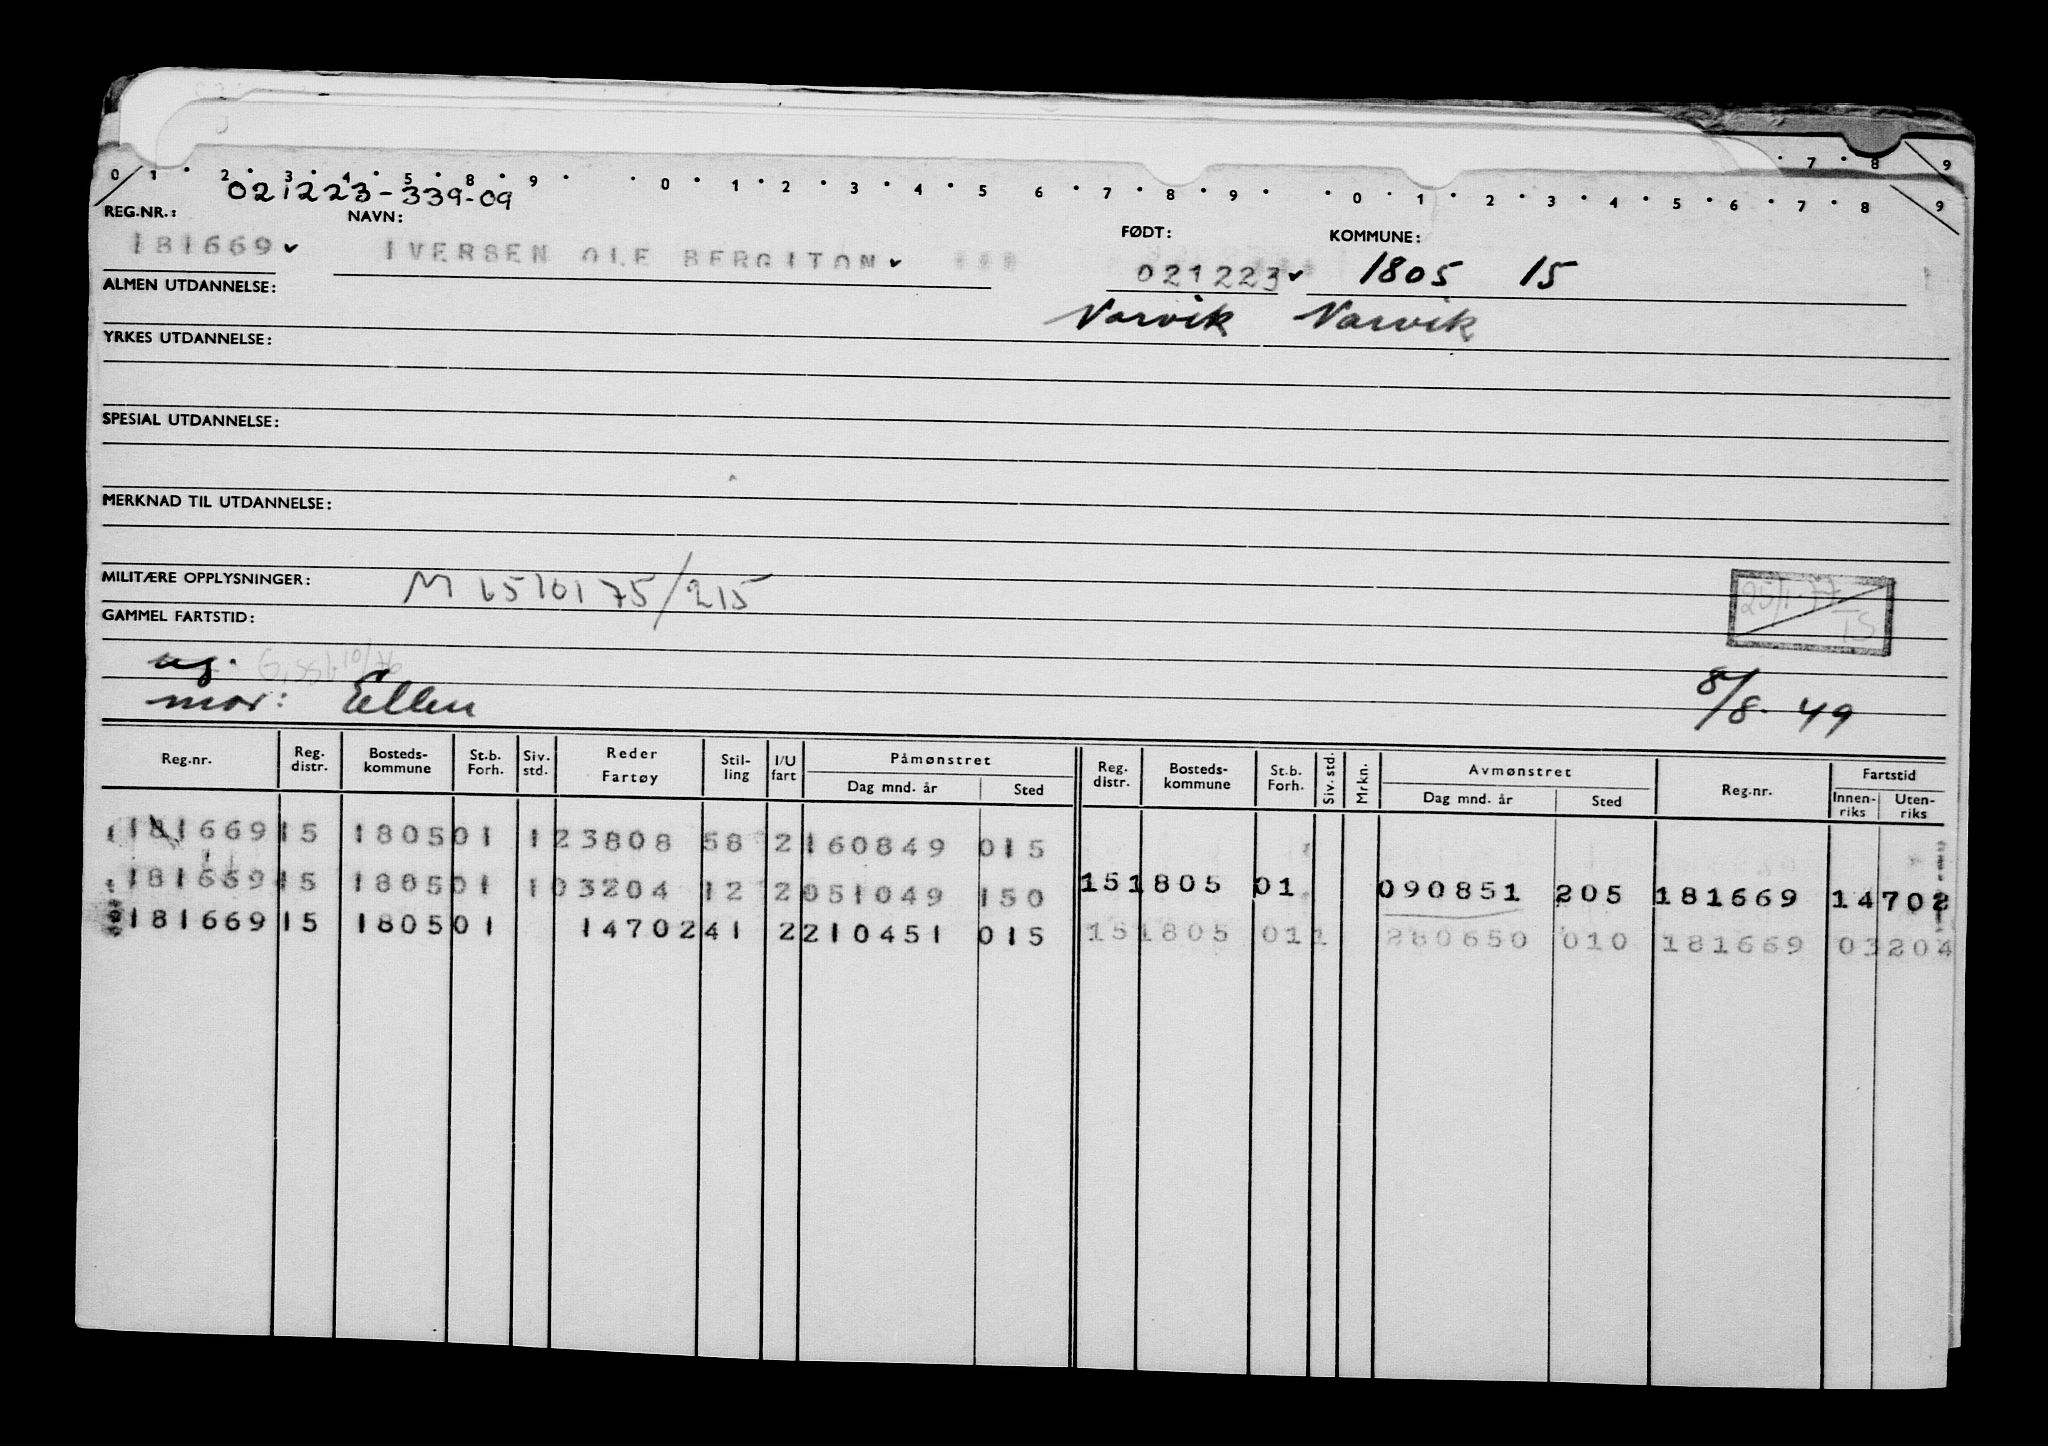 7 8 9
0 1 2 3 4 5 8 9 0 1 2 3 4 5 6 7 8 9 0 1 2 3 4 5 6 7 8 9
021223-339-09
REG.NR.: NAVN: FØDT: KOMMUNE:
181669 IVERSEN OLE BERGITON 021223 1805 15
ALMEN UTDANNELSE: Narvik Narvik
YRKES UTDANNELSE:
SPESIAL UTDANNELSE:
MERKNAD TIL UTDANNELSE:
MILITÆRE OPPLYSNINGER: M 6510175/215
GAMMEL FARTSTID:
ug.
mor: Ellen 8/8-49
Reg.nr. Reg. distr. Bosteds-kommune St.b. Forh. Siv. std. Reder Fartøy Stil-ling I/U fart Påmønstret Dag mnd. år Sted Reg. distr. Bosteds-kommune St.b. Forh. Siv. std. Mrkn. Avmønstret Dag mnd. år Sted Reg.nr. Fartstid Innen-riks Uten-riks
181669 15 1805 01 1 23808 58 2 160849 015
181669 15 1805 01 1 03204 12 2 051049 150 15 1805 01 090851 205 181669 14702
181669 15 1805 01 14702 41 2 210451 015 15 1805 01 1 280650 010 181669 03204